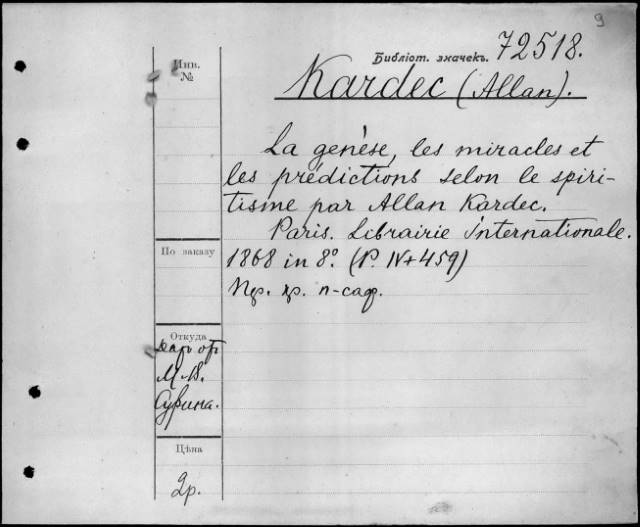 9
Библіот. значекъ. 72518.
Инв.
№
Kardec (Allan).
La genèse, les miracles et
les prédictions selon le spiri-
tisme par Allan Kardec.
Paris. Librairie Internationale.
1868 in 8º. (P. IV+459)
По заказу
Откуда
М. В.
Цѣна
2р.